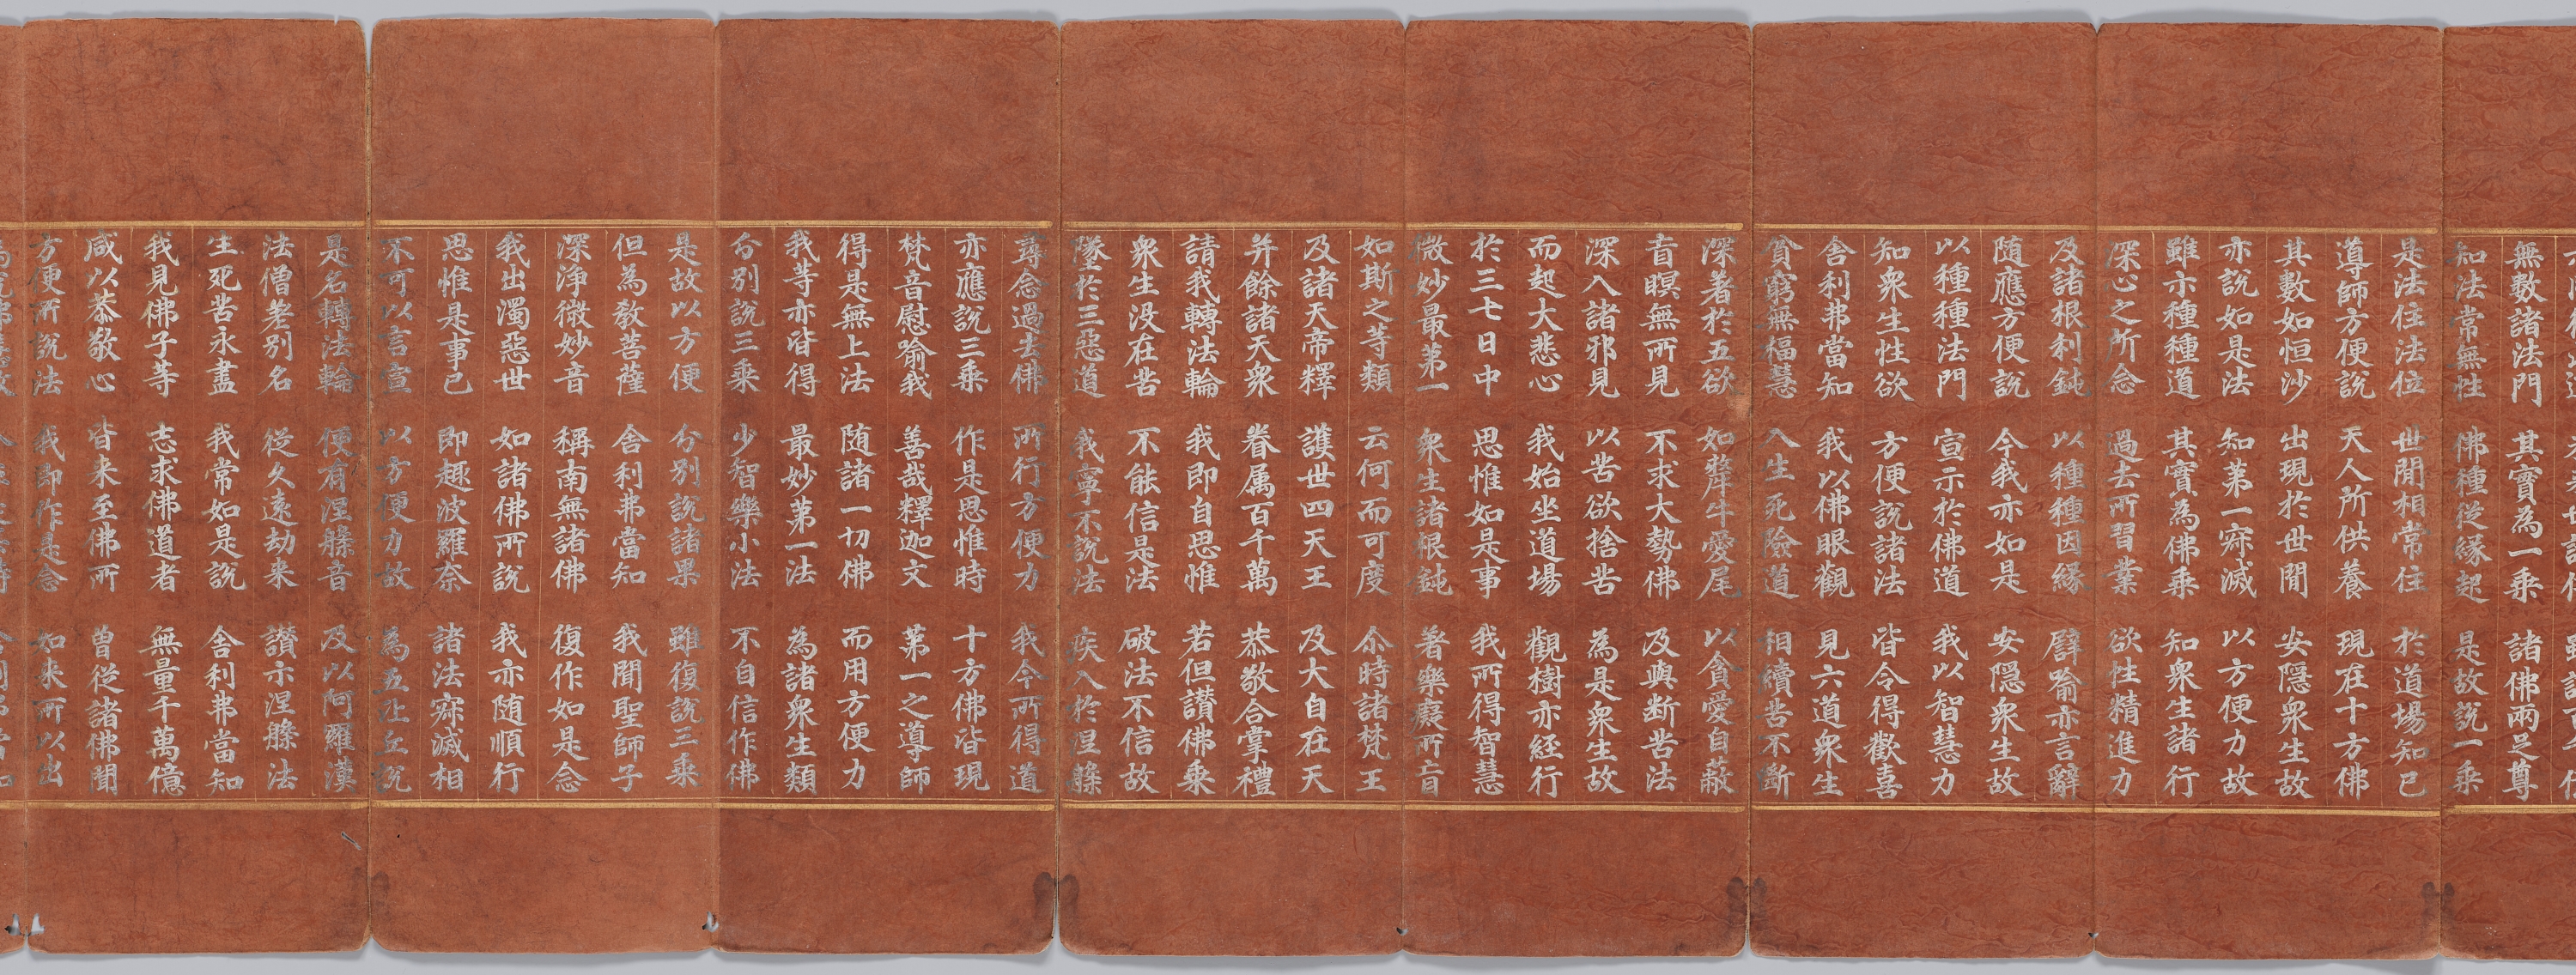 無數諸法門 其實為一乘 諸佛兩足尊
知法常無性 佛種從緣起 是故說一乘
是法住法位 世間相常住 於道場知已
導師方便說 天人所供養 現在十方佛
其數如恒沙 出現於世間 安隱衆生故
亦說如是法 知第一寂滅 以方便力故
雖示種種道 其實為佛乘 知衆生諸行
深心之所念 過去所習業 欲性精進力
及諸根利鈍 以種種因緣 譬喻亦言辭
随應方便說 今我亦如是 安隱衆生故
以種種法門 宣示於佛道 我以智慧力
知衆生性欲 方便說諸法 皆令得歡喜
舎利弗當知 我以佛眼觀 見六道衆生
貧窮無福慧 入生死險道 相續苦不斷
深著於五欲 如犛牛愛尾 以貪愛自蔽
盲瞑無所見 不求大勢佛 及與断苦法
深入諸邪見 以苦欲捨苦 為是衆生故
而起大悲心 我始坐道場 觀樹亦経行
於三七日中 思惟如是事 我所得智慧
微妙最第一 衆生諸根鈍 著樂癡所盲
如斯之等類 云何而可度 尒時諸梵王
及諸天帝釋 護世四天王 及大自在天
并餘諸天衆 眷属百千萬 恭敬合掌禮
請我轉法輪 我即自思惟 若但讃佛乘
衆生没在苦 不能信是法 破法不信故
墜於三惡道 我寧不說法 疾入於涅槃
尋念過去佛 所行方便力 我今所得道
亦應說三乘 作是思惟時 十方佛皆現
梵音慰喻我 善哉釋迦文 第一之導師
得是無上法 随諸一切佛 而用方便力
我等亦皆得 最妙第一法 為諸衆生類
分別說三乘 少智樂小法 不自信作佛
是故以方便 分別說諸果 雖復說三乘
但為教菩薩 舎利弗當知 我聞聖師子
深淨微妙音 稱南無諸佛 復作如是念
我出濁惡世 如諸佛所說 我亦随順行
思惟是事已 即趣波羅奈 諸法寂滅相
不可以言宣 以方便力故 為五比丘說
是名轉法輪 便有涅槃音 及以阿羅漢
法僧差別名 從久遠劫来 讃示涅槃法
生死苦永盡 我常如是說 舎利弗當知
我見佛子等 志求佛道者 無量千萬億
咸以恭敬心 皆来至佛所 曽從諸佛聞
方便所說法 我即作是念 如来所以出